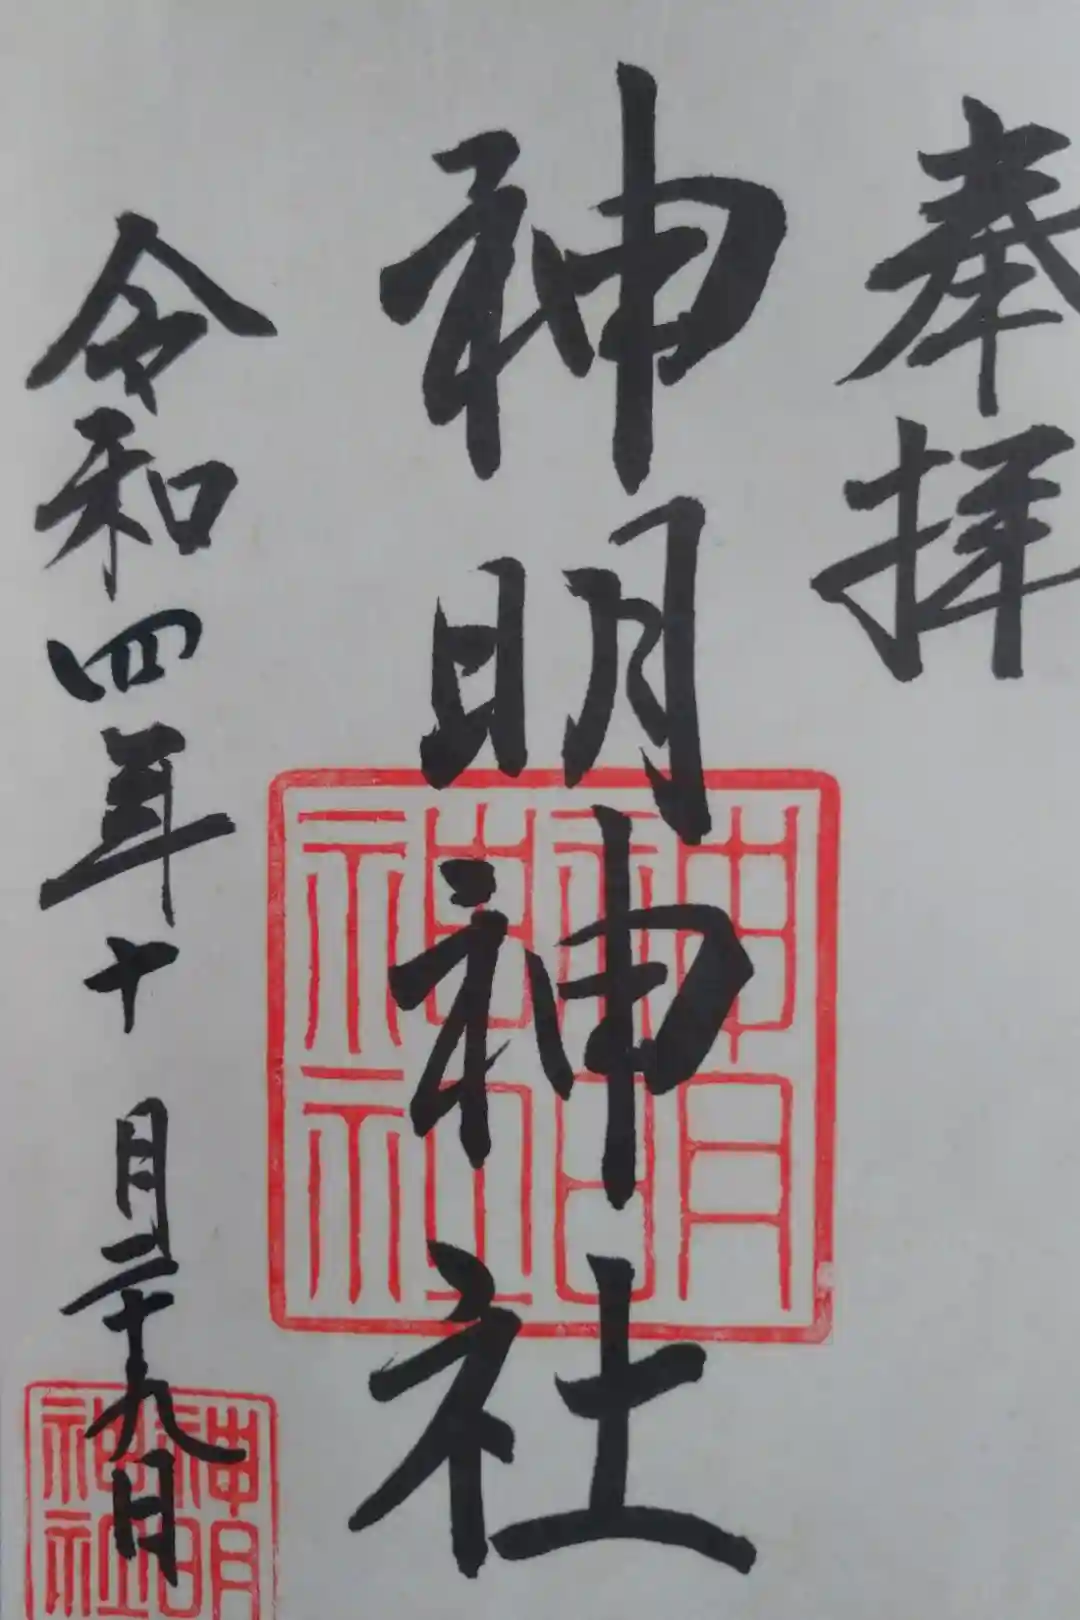 奉拝
神明神社
令和四年十月二十九日
神明
神社
神明
神社